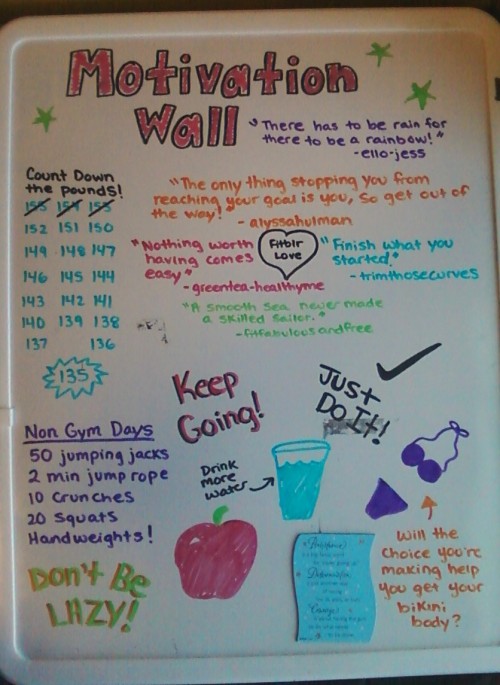 Motivation
Wall
"There has to be rain for
there to be a rainbow!"
-ello-jess
Count Down
the pounds!
155 154 153
152 151 150
149 148 147
146 145 144
143 142 141
140 139 138
137 136
135
"The only thing stopping you from
reaching your goal is you, so get out of
the way!" - alyssahulman
"Nothing worth
having comes
easy"
-greentea-healthyme
Fitblr
Love
"Finish what you
started."
-trimthosecurves
"A smooth sea never made
a skilled sailor."
-fitfabulousandfree
Keep
Going!
Just
Do It!
Non Gym Days
50 jumping jacks
2 min jump rope
10 Crunches
20 Squats
Handweights!
Don't Be
LAZY!
Drink
more
water
Will the
choice you're
making help
you get your
bikini
body?